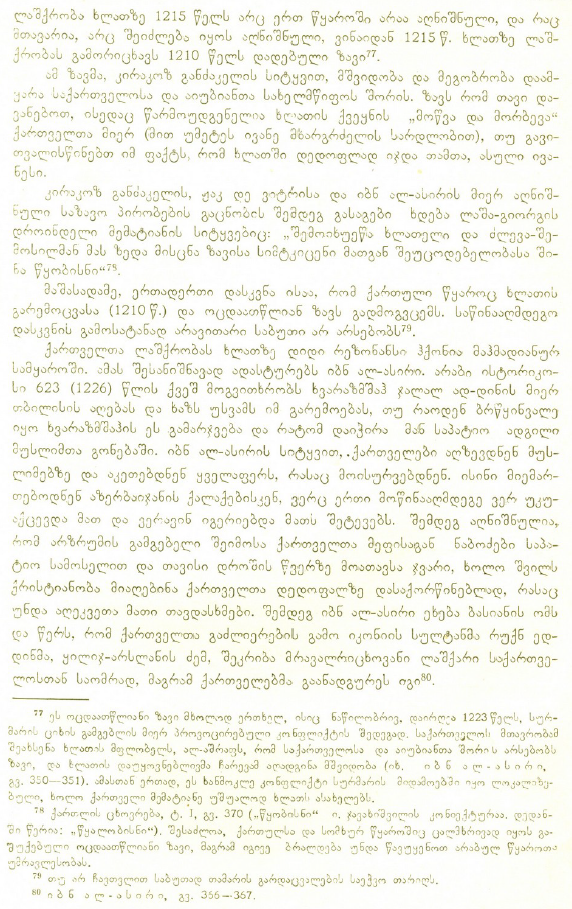 ლაშქრობა ხლათზე 1215 წელს არც ერთ წყაროში არაა აღნიშნული, და რაც
მთავარია, არც შეიძლება იყოს აღნიშნული, ვინაიდან 1215 წ. ხლათზე ლაშ-
ქრობას გამორიცხავს 1210 წელს დადებული ზავი⁷⁷.
ამ ზავმა, კირაკოზ განძაკელის სიტყვით, მშვიდობა და მეგობრობა დაამ-
ყარა საქართველოსა და აიუბიანთა სახელმწიფოს შორის. ზავს რომ თავი და-
ვანებოთ, ისედაც წარმოუდგენელია ხლათის ქვეყნის „მოწვა და მორბევა“
ქართველთა მიერ (მით უმეტეს ივანე მხარგრძელის სარდლობით), თუ გავი-
თვალისწინებთ იმ ფაქტს, რომ ხლათში დედოფლად იჯდა თამთა, ასული ივა-
ნესი.
კირაკოზ განძაკელის, ჟაკ დე ვიტრისა და იბნ ალ-ასირის მიერ აღნიშ-
ნული საზავო პირობების გაცნობის შემდეგ გასაგები ხდება ლაშა-გიორგის
დროინდელი მემატიანის სიტყვებიც: „შემოიხუეწა ხლათელი და ძლევა-შე-
მოსილმან მას ზედა მისცნა ზავისა სიმტკიცენი მათგან შეუცოდებელობასა ში-
ნა წყობისნი“⁷⁸.
მაშასადამე, ერთადერთი დასკვნა ისაა, რომ ქართული წყაროც ხლათის
გარემოცვასა (1210 წ.) და ოცდაათწლიან ზავს გადმოგვცემს. საწინააღმდეგო
დასკვნის გამოსატანად არავითარი საბუთი არ არსებობს⁷⁹.
ქართველთა ლაშქრობას ხლათზე დიდი რეზონანსი ჰქონია მაჰმადიანურ
სამყაროში. ამას შესანიშნავად ადასტურებს იბნ ალ-ასირი. არაბი ისტორიკო-
სი 623 (1226) წლის ქვეშ მოგვითხრობს ხვარაზმშაჰ ჯალალ ად-დინის მიერ
თბილისის აღებას და ხაზს უსვამს იმ გარემოებას, თუ რაოდენ ბრწყინვალე
იყო ხვარაზმშაჰის ეს გამარჯვება და რატომ დაიჭირა მან საპატიო ადგილი
მუსლიმთა გონებაში. იბნ ალ-ასირის სიტყვით, „ქართველები აღზევდნენ მუს-
ლიმებზე და აკეთებდნენ ყველაფერს, რასაც მოისურვებდნენ. ისინი მიემარ-
თებოდნენ აზერბაიჯანის ქალაქებისკენ, ვერც ერთი მოწინააღმდეგე ვერ უკუ-
აქცევდა მათ და ვერავინ იგერიებდა მათს შეტევებს. შემდეგ აღნიშნულია,
რომ არზრუმის გამგებელი შეიმოსა ქართველთა მეფისაგან ნაბოძები საპა-
ტიო სამოსელით და თავისი დროშის წვერზე მოათავსა ჯვარი, ხოლო შვილს
ქრისტიანობა მიაღებინა ქართველთა დედოფალზე დასაქორწინებლად, რასაც
უნდა აღეკვეთა მათი თავდასხმები. შემდეგ იბნ ალ-ასირი ეხება ბასიანის ომს
და წერს, რომ ქართველთა გაძლიერების გამო იკონიის სულტანმა რუქნ ედ-
დინმა, ყილიჯ-არსლანის ძემ, შეკრიბა მრავალრიცხოვანი ლაშქარი საქართვე-
ლოსთან საომრად, მაგრამ ქართველებმა გაანადგურეს იგი⁸⁰.
⁷⁷ ეს ოცდაათწლიანი ზავი მხოლოდ ერთხელ, ისიც ნაწილობრივ, დაირღვა 1223 წელს, სურ-
მარის ციხის გამგებლის მიერ პროვოცირებული კონფლიქტის შედეგად. საქართველოს მთავრობამ
შეახსენა ხლათის მფლობელს, ალ-აშრაფს, რომ საქართველოსა და აიუბიანთა შორის არსებობს
ზავი, და ხლათის დაუყოვნებლივმა ჩარევამ აღადგინა მშვიდობა (იხ. იბნ ალ-ასირი,
გვ. 350—351). ამასთან ერთად, ეს ხანმოკლე კონფლიქტი სურმარის მიდამოებში იყო ლოკალიზე-
ბული, ხოლო ქართველი მემატიანე უშუალოდ ხლათს ასახელებს.
⁷⁸ ქართლის ცხოვრება, ტ. I, გვ. 370 („წყობისნი“ ი. ჯავახიშვილის კონიექტურაა. დედან-
ში წერია: „წყალობისნი“). შესაძლოა, ქართულსა და სომხურ წყაროშიც ცალმხრივად იყოს გა-
შუქებული ოცდაათწლიანი ზავი, მაგრამ იგივე ბრალდება უნდა წავუყენოთ არაბულ წყაროთა
უმრავლესობას.
⁷⁹ თუ არ ჩავთვლით საბუთად თამარის გარდაცვალების საეჭვო თარიღს.
⁸⁰ იბნ ალ-ასირი, გვ. 356—367.